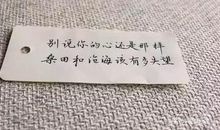 别说你的心还是那样
桑田和沧海该有多失望